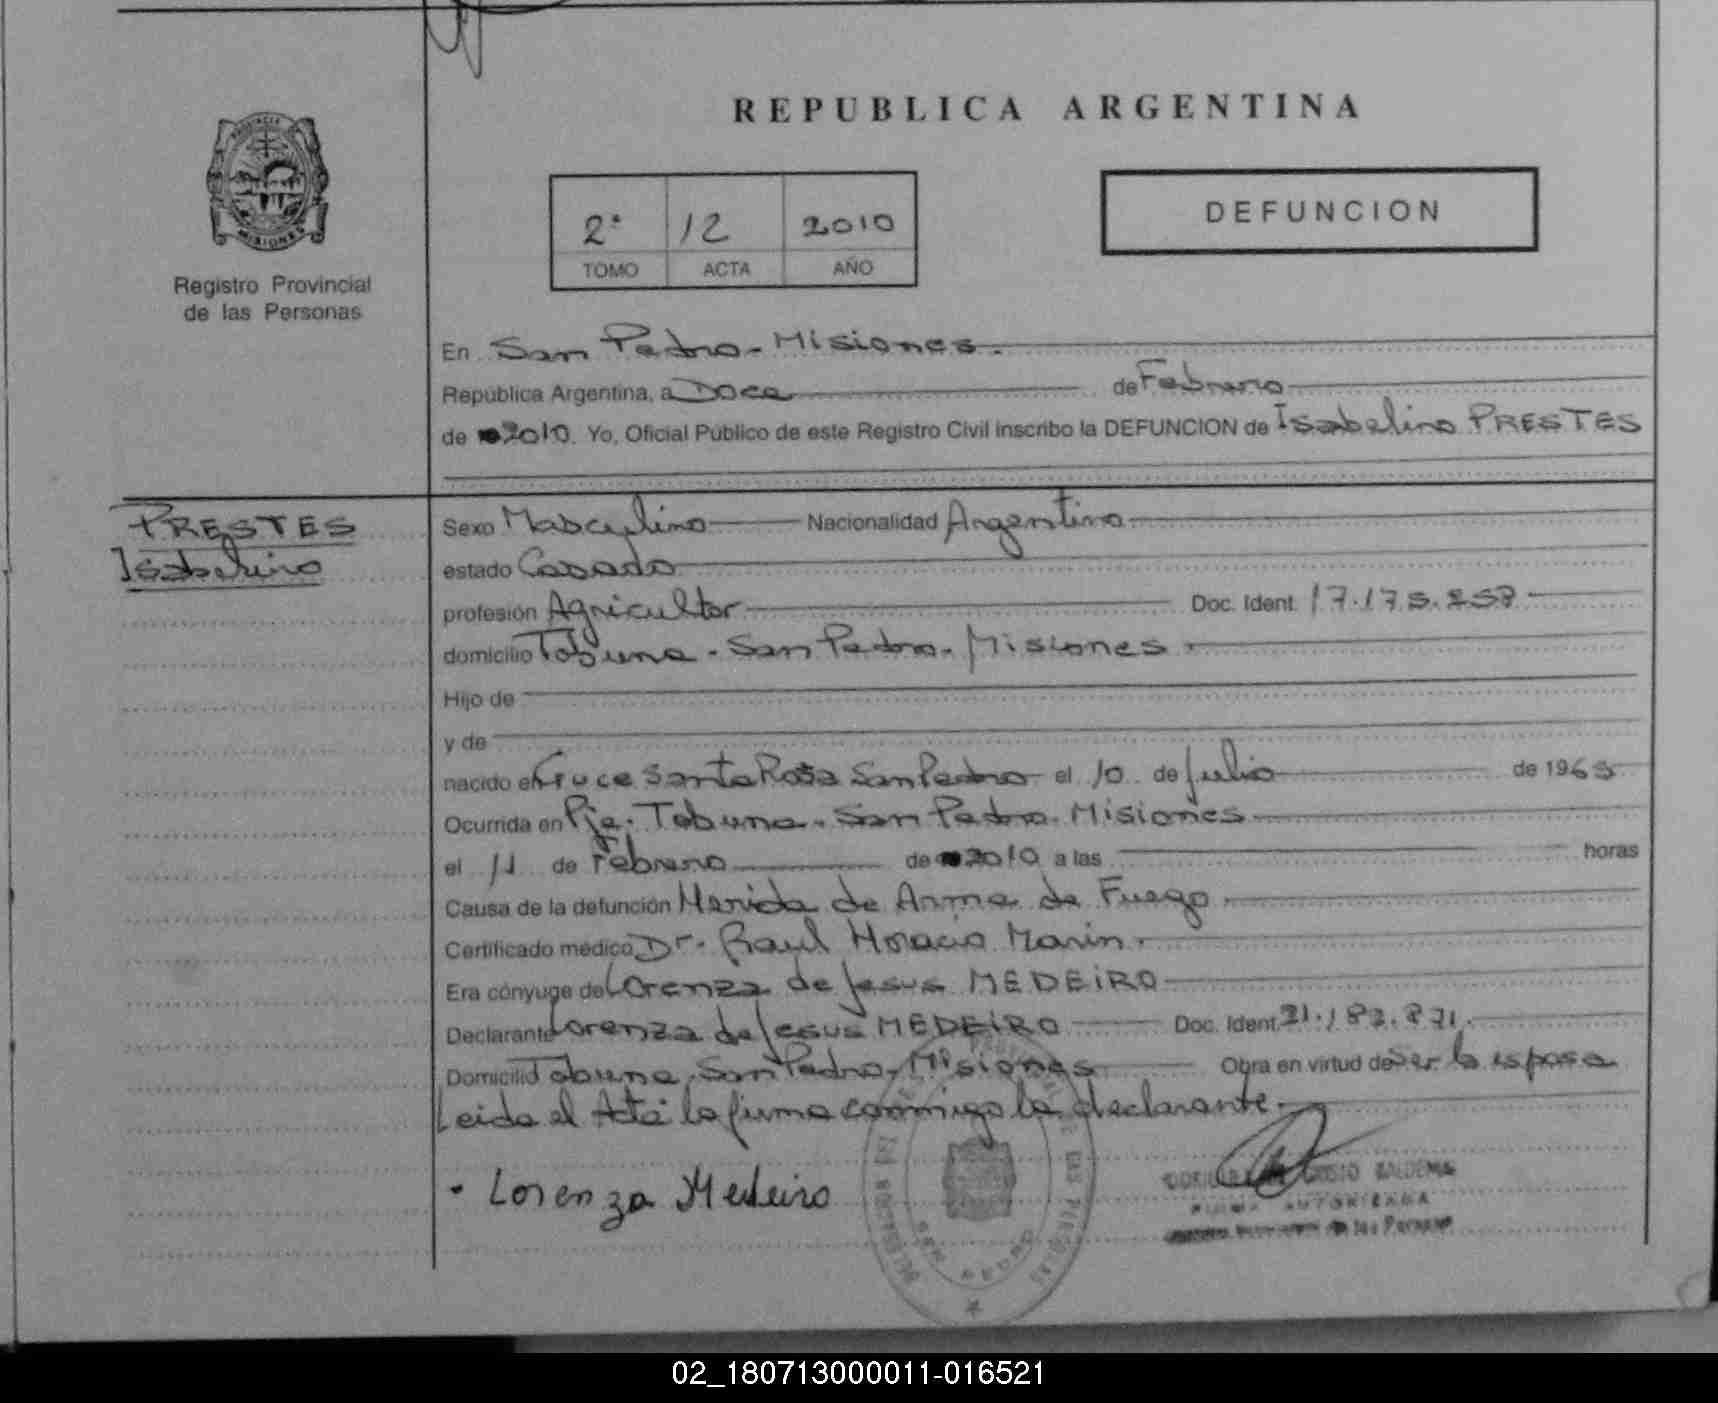 REPUBLICA ARGENTINA
PROVINCIA
MISIONES
Registro Provincial
de las Personas
2° 12 2010
TOMO ACTA AÑO
DEFUNCION
En San Pedro - Misiones.
República Argentina, a Doce de Febrero
de 2010. Yo, Oficial Público de este Registro Civil inscribo la DEFUNCION de Isabelino PRESTES
PRESTES
Isabelino
Sexo Masculino Nacionalidad Argentino
estado Casado
profesión Agricultor Doc. Ident. 17.175.257
domicilio Tobuna - San Pedro - Misiones.
Hijo de
y de
nacido en Cruce Santa Rosa San Pedro el 10 de Julio de 1965
Ocurrida en Pje. Tobuna - San Pedro - Misiones
el 11 de Febrero de 2010 a las horas
Causa de la defunción Herida de Arma de Fuego
Certificado médico Dr. Raul Horacio Marin.
Era cónyuge de Lorenza de Jesus MEDEIRO
Declarante Lorenza de Jesus MEDEIRO Doc. Ident. 21.183.871.
Domicilio Tobuna, San Pedro, Misiones Obra en virtud de Ser la esposa
Leida el Acta la firma conmigo la declarante.
Lorenza Medeiro
FIRMA AUTORIZADA
de las Personas
SAN PEDRO
02_180713000011-016521